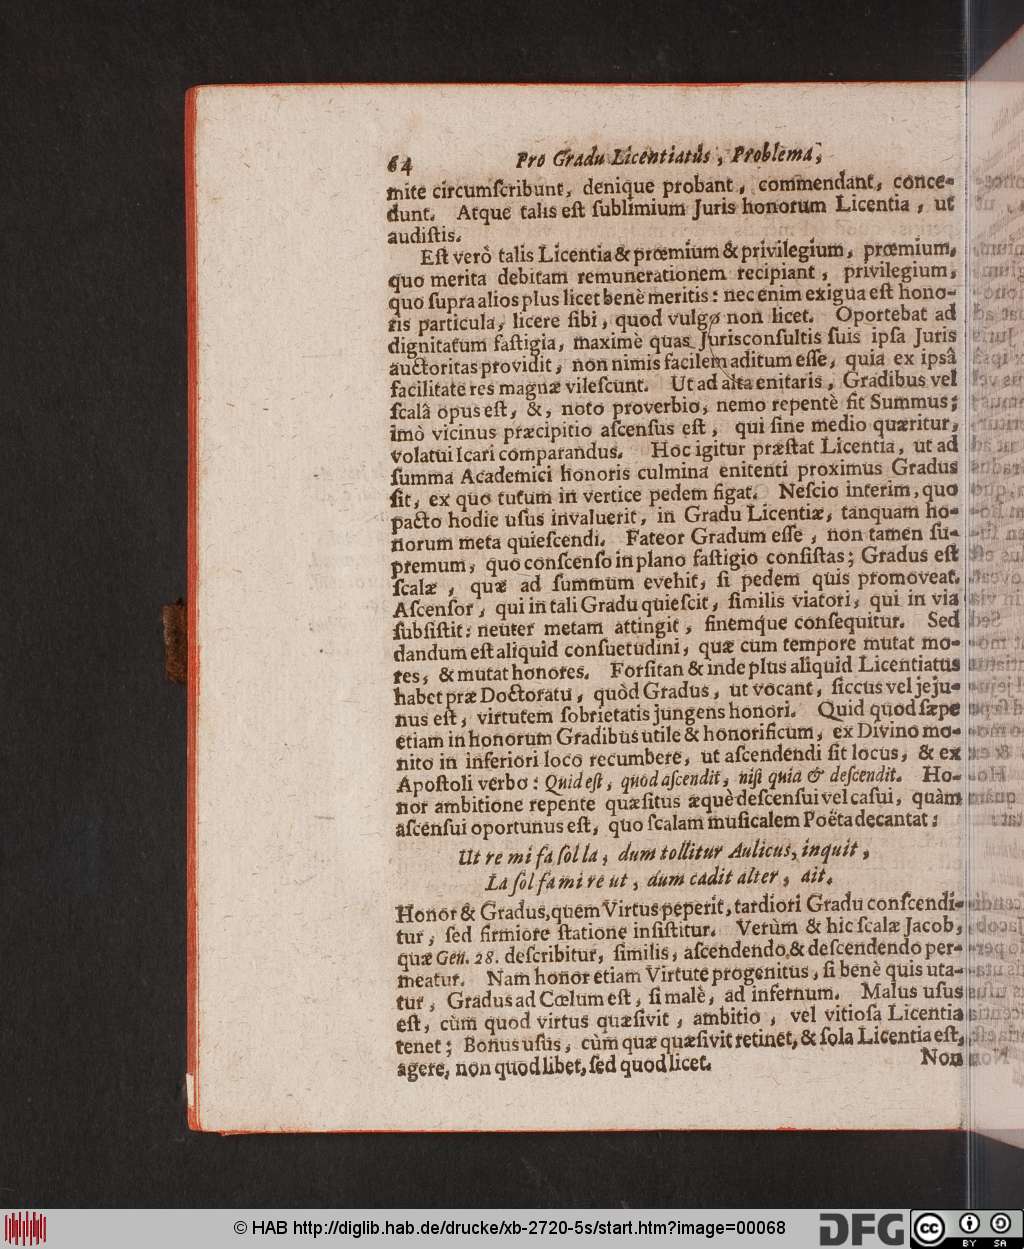 64 Pro Gradu Licentiatûs, Problema,
mite circumſcribunt, denique probant, commendant, conce-
dunt. Atque talis eſt ſublimium Juris honorum Licentia, ut
audiſtis.
Eſt verò talis Licentia & prœmium & privilegium, prœmium,
quo merita debitam remunerationem recipiant, privilegium,
quo ſupra alios plus licet benè meritis: nec enim exigua eſt hono-
ris particula, licere ſibi, quod vulgo non licet. Oportebat ad
dignitatum faſtigia, maximè quas Jurisconſultis ſuis ipſa Juris
auctoritas providit, non nimis facilem aditum eſſe, quia ex ipsâ
facilitate res magnæ vileſcunt. Ut ad alta enitaris, Gradibus vel
ſcalâ opus eſt, &, noto proverbio, nemo repentè fit Summus;
imò vicinus præcipitio aſcenſus eſt, qui ſine medio quæritur,
volatui Icari comparandus. Hoc igitur præſtat Licentia, ut ad
ſumma Academici honoris culmina enitenti proximus Gradus
ſit, ex quo tutum in vertice pedem figat. Neſcio interim, quo
pacto hodie uſus invaluerit, in Gradu Licentiæ, tanquam ho-
norum meta quieſcendi. Fateor Gradum eſſe, non tamen ſu-
premum, quo conſcenſo in plano faſtigio conſiſtas; Gradus eſt
ſcalæ, quæ ad ſummum evehit, ſi pedem quis promoveat.
Aſcenſor, qui in tali Gradu quieſcit, ſimilis viatori, qui in via
ſubſiſtit: neuter metam attingit, finemque conſequitur. Sed
dandum eſt aliquid conſuetudini, quæ cum tempore mutat mo-
res, & mutat honores. Forſitan & inde plus aliquid Licentiatus
habet præ Doctoratu, quòd Gradus, ut vocant, ſiccus vel jeju-
nus eſt, virtutem ſobrietatis jungens honori. Quid quod ſæpe
etiam in honorum Gradibus utile & honorificum, ex Divino mo-
nito in inferiori loco recumbere, ut aſcendendi ſit locus, & ex
Apoſtoli verbo: Quid eſt, quod aſcendit, niſi quia & deſcendit. Ho-
nor ambitione repente quæſitus æquè deſcenſui vel caſui, quàm
aſcenſui oportunus eſt, quo ſcalam muſicalem Poëta decantat:
Ut re mi fa ſol la, dum tollitur Aulicus, inquit,
La ſol fa mi re ut, dum cadit alter, ait.
Honor & Gradus, quem Virtus peperit, tardiori Gradu conſcendi-
tur, ſed firmiore ſtatione inſiſtitur. Verùm & hic ſcalæ Jacob,
quæ Gen. 28. deſcribitur, ſimilis, aſcendendo & deſcendendo per-
meatur. Nam honor etiam Virtute progenitus, ſi benè quis uta-
tur, Gradus ad Cœlum eſt, ſi malè, ad infernum. Malus uſus
eſt, cùm quod virtus quæſivit, ambitio, vel vitioſa Licentia
tenet; Bonus uſus, cùm quæ quæſivit retinet, & ſola Licentia eſt,
agere, non quod libet, ſed quod licet.
Non
© HAB http://diglib.hab.de/drucke/xb-2720-5s/start.htm?image=00068
DFG
cc BY SA